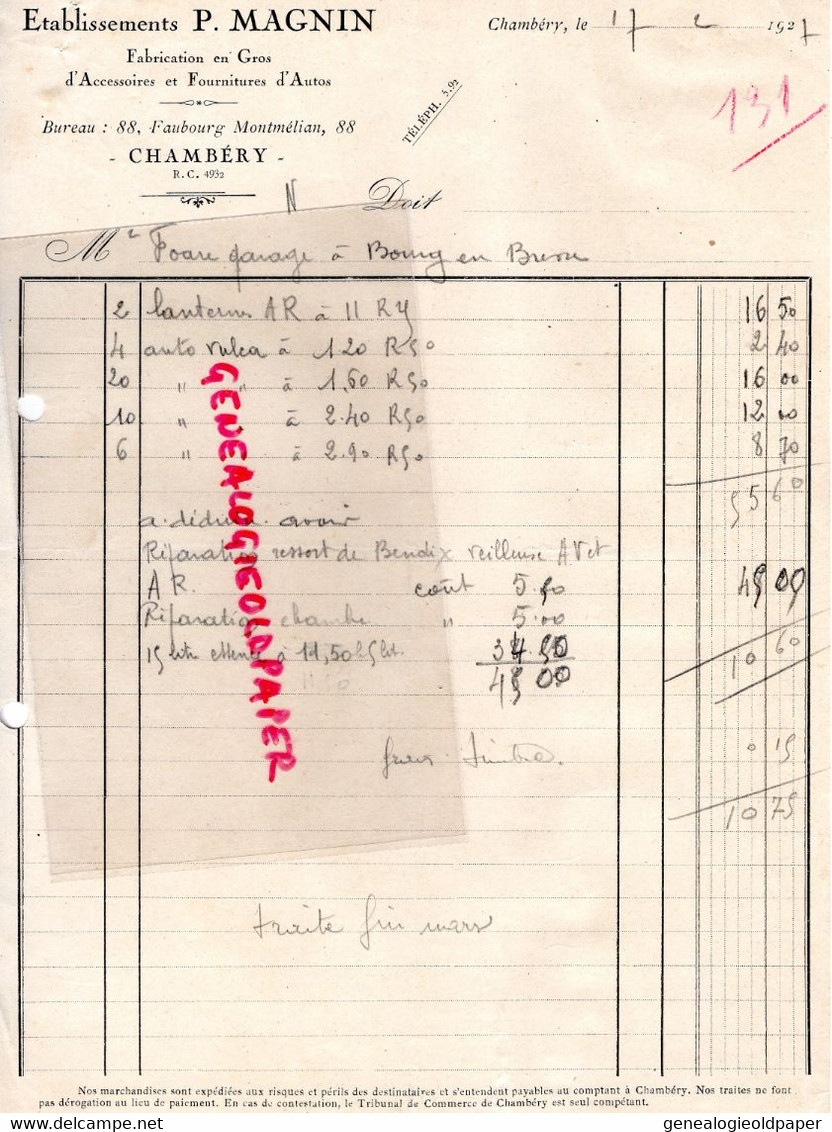 Etablissements P. MAGNIN
Fabrication en Gros
d'Accessoires et Fournitures d'Autos
Bureau : 88, Faubourg Montmélian, 88
- CHAMBÉRY -
R. C. 4932
TÉLÉPH. 5.92
Chambéry, le 17 2 1927
131
N Doit
Mr garage à Bourg en
2 lanternes AR à 11 16 50
4 auto vulca à 1 20 R50 2 40
20 " " à 1,60 R50 16 00
10 " à 2.40 R50 12 00
6 " à 2.90 R50 8 70
55 60
a déduire avoir
Réparation ressort de Bendix veilleuse AV et
AR. coût 5.50 45 00
Réparation chambre " 5.00
15 litre essence à 11,50 les 5 lit. 34 50
45 00
10 60
timbre. 0 15
10 75
traite fin mars
GENEALOGIEOLDPAPER
Nos marchandises sont expédiées aux risques et périls des destinataires et s'entendent payables au comptant à Chambéry. Nos traites ne font
pas dérogation au lieu de paiement. En cas de contestation, le Tribunal de Commerce de Chambéry est seul compétant.
www.delcampe.net genealogieoldpaper